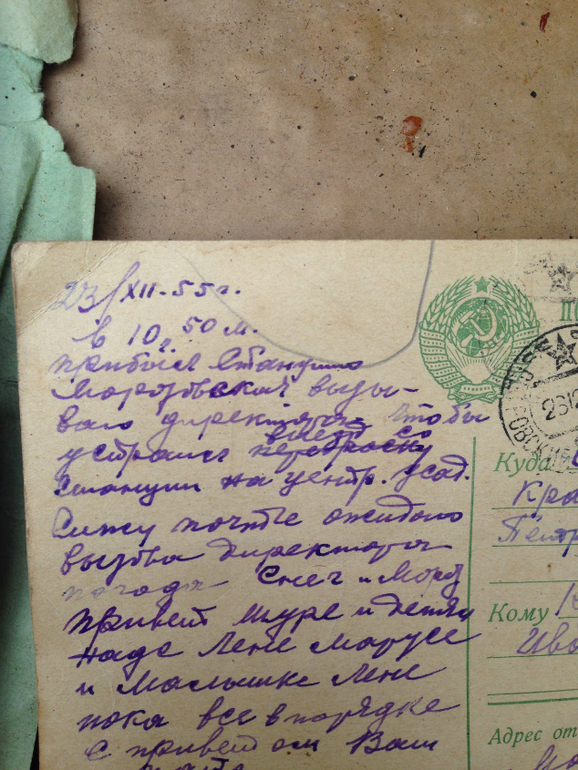 23/XII-55г.
в 10г. 50 м.
прибыл Станцию
Морозовская вызы-
ваю директора чтобы
вместо со
устроил переброску
станции на центр. усад.
Сижу почте ожидаю
вызова директора
погода Снег и Мороз
привет Шуре и детям
Наде Лене Марусе
и Малышке Лене
пока все в порядке
с приветом Ваш
Куда
Кра
Петр
Кому
Ива
Адрес от